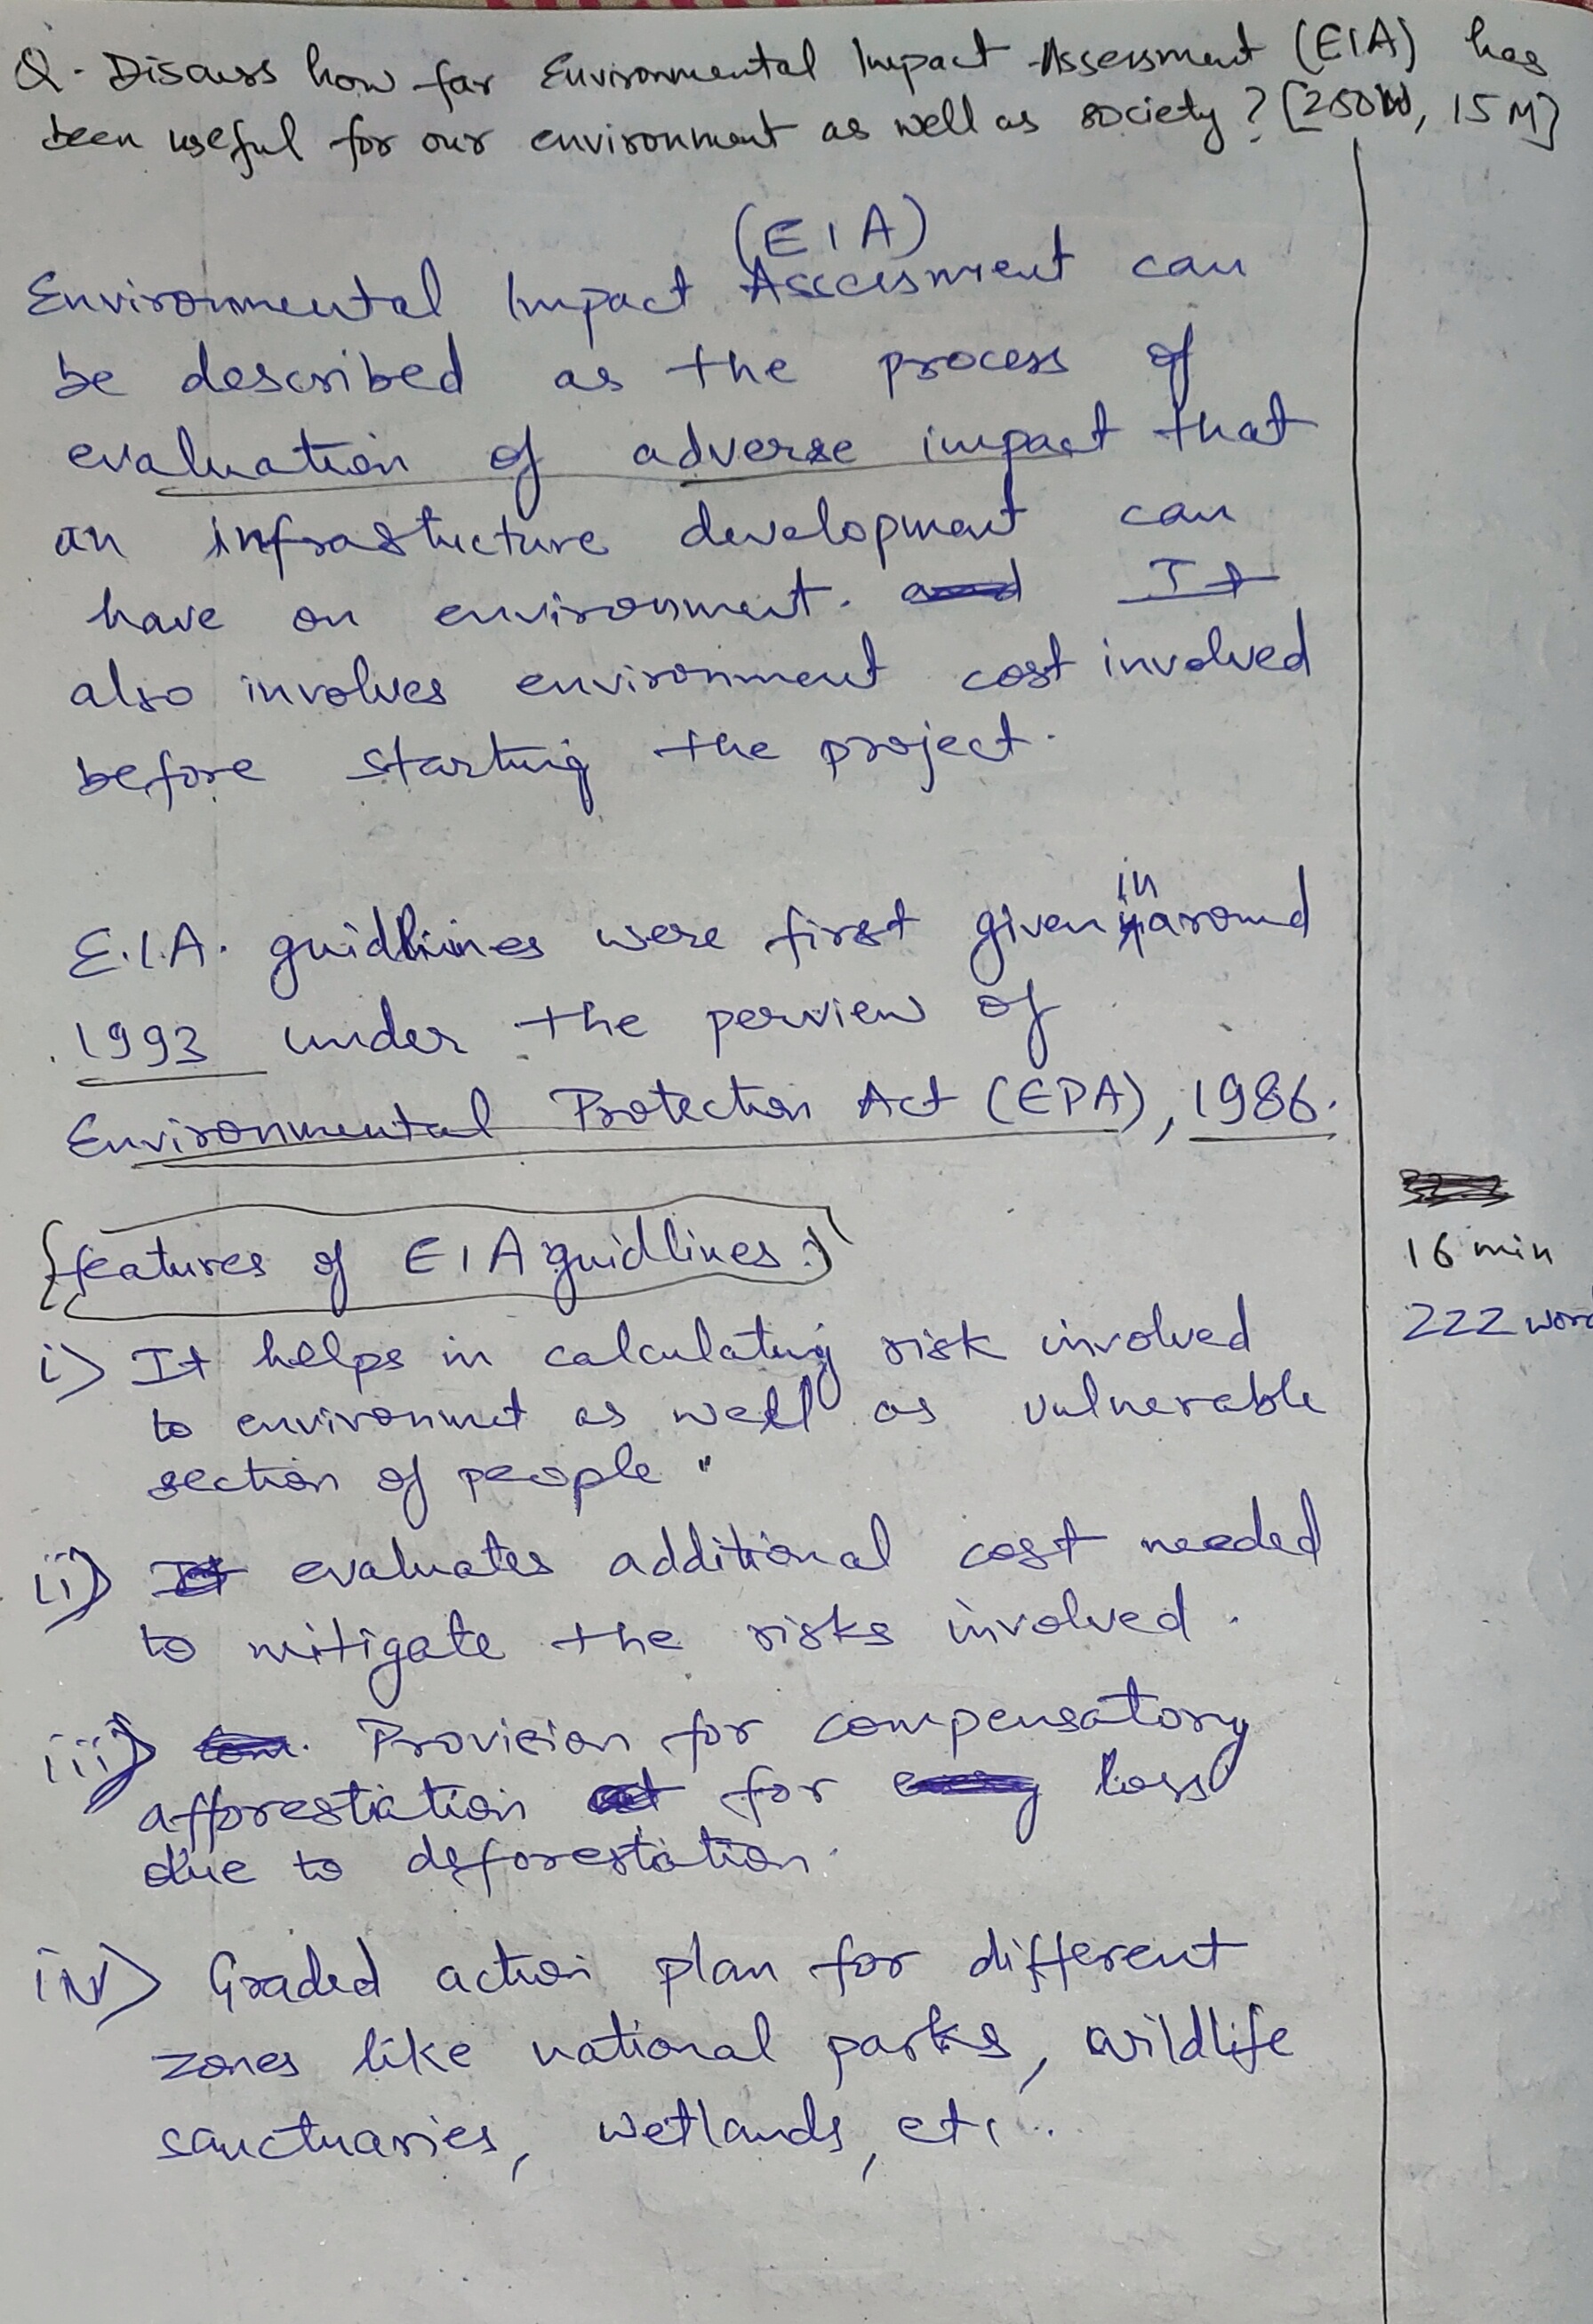 Q - Discuss how far Environmental Impact Assessment (EIA) has
been useful for our environment as well as society? [250W, 15M]
(EIA)
Environmental Impact Assessment can
be described as the process of
evaluation of adverse impact that
an infrastucture development can
have on environment. It
also involves environment cost involved
before starting the project.
E.I.A. guidlines were first given in around
1993 under the perview of
Environmental Protection Act (EPA), 1986.
features of EIA guidlines:
i) It helps in calculating risk involved
to environmet as well as vulnerable
section of people.
16 min
222 word
ii) evaluates additional cost needed
to mitigate the risks involved.
iii) Provision for compensatory
afforestiation for loss
due to deforestation.
iv) Graded action plan for different
zones like national parks, wildlife
sanctuaries, wetlands, etc..